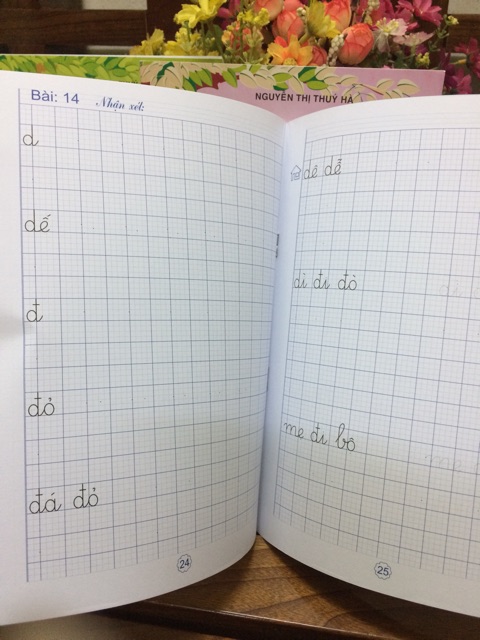 NGUYỄN THỊ THUÝ HÀ
Bài: 14 Nhận xét:
d
dế
đ
đỏ
đá đỏ
24
dê dễ
dì đi đò
mẹ đi bộ
25